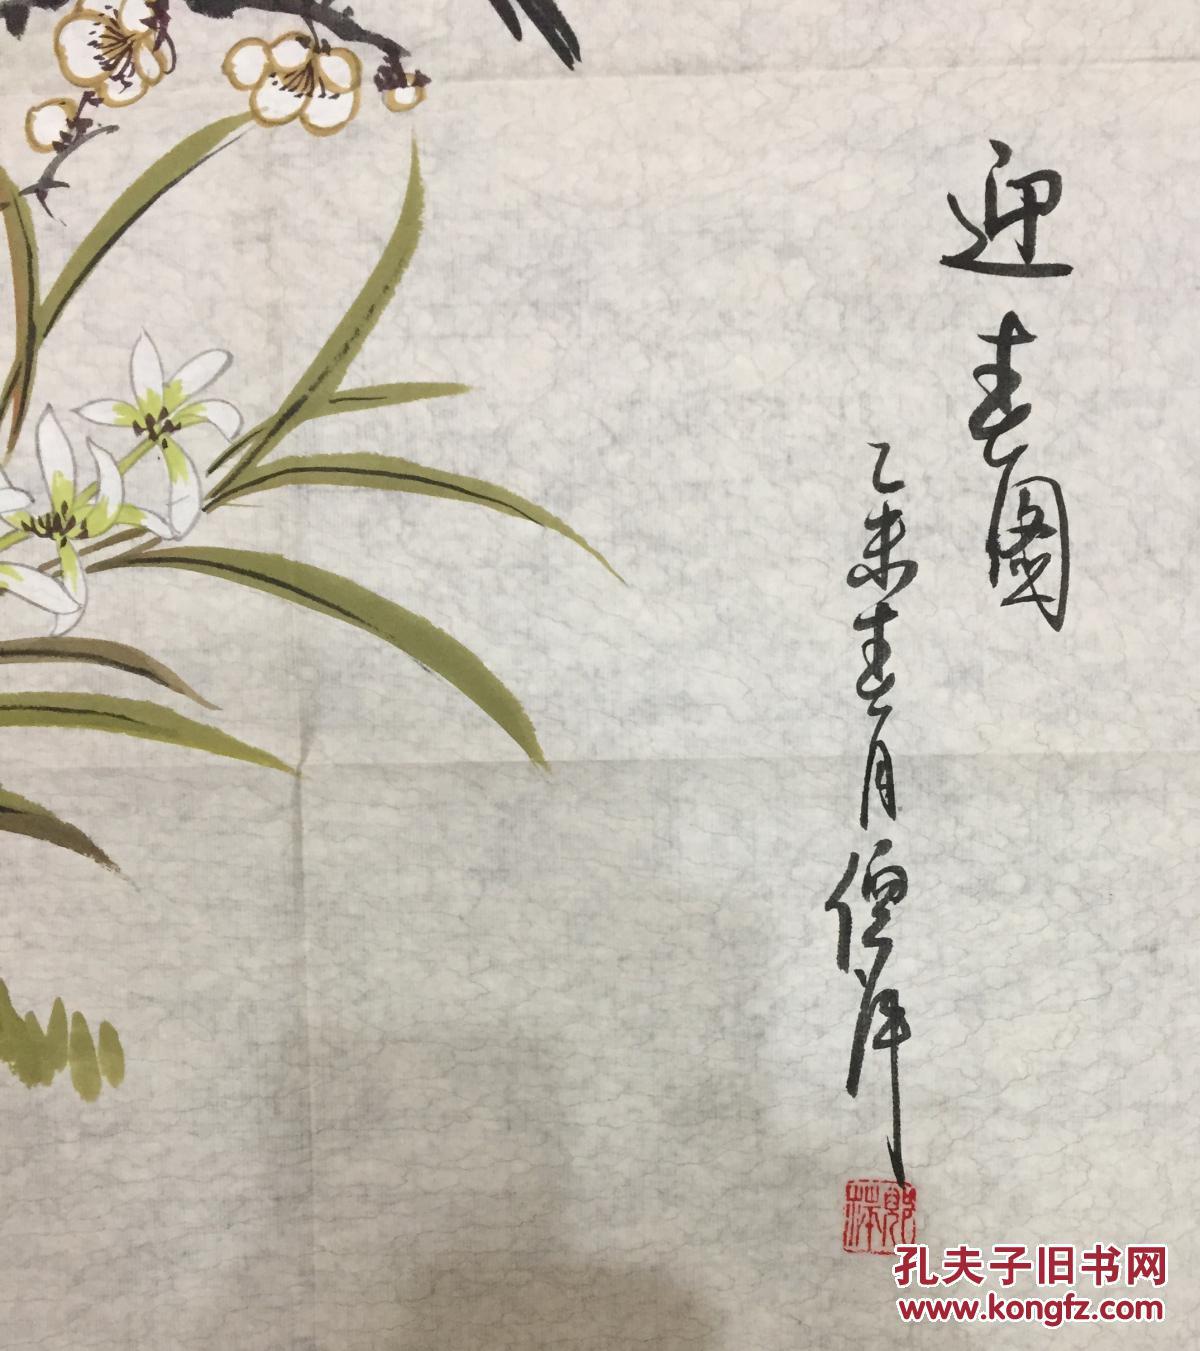 迎春图
乙未春月
孔夫子旧书网
www.kongfz.com